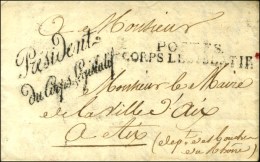 A Monsieur
Président
du Corps Législatif
CORPS LEGISLATIF
Monsieur le Maire
de la Ville d'Aix
a Aix
(dept. des Bouches
du Rhône)